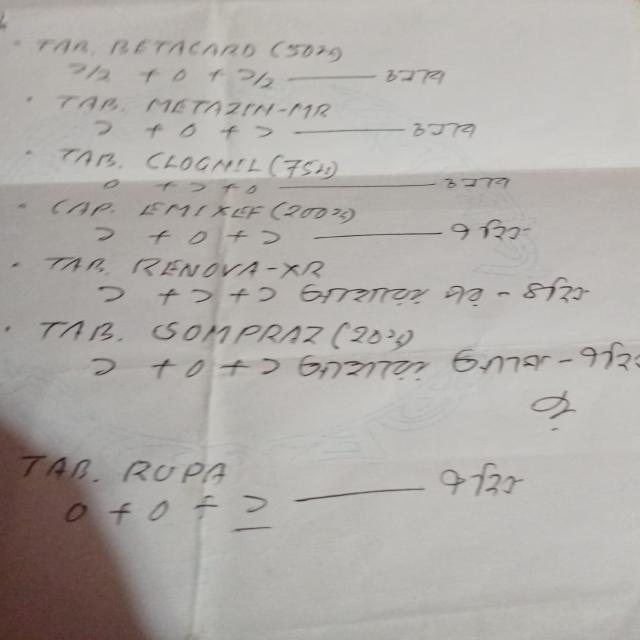 TAB. BETACARD (50mg)
১/২ + ০ + ১/২ ——— চলবে
TAB. METAZIN-MR
১ + ০ + ১ ——— চলবে
TAB. CLOGNIL (75mg)
০ + ১ + ০ ——— চলবে
CAP. EMIXEF (200mg)
১ + ০ + ১ ——— ৭ দিন
TAB. RENOVA-XR
১ + ১ + ১ খাবারের পর - ৪ দিন
TAB. SOMPRAZ (20mg)
১ + ০ + ১ খাবারের আগে - ৭ দিন
TAB. RUPA
০ + ০ + ১ ——— ৭ দিন